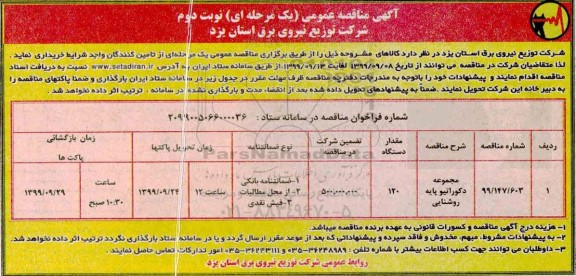 آگهی مناقصه عمومی (یک مرحله ای) نوبت دوم
شرکت توزیع نیروی برق استان یزد
شرکت توزیع نیروی برق استان یزد در نظر دارد کالاهای مشروحه ذیل را از طریق برگزاری مناقصه عمومی یک مرحله‌ای از تامین کنندگان واجد شرایط خریداری نماید .
لذا متقاضیان شرکت در مناقصه می توانند از تاریخ ۱۳۹۹/۰۹/۰۸ لغایت ۱۳۹۹/۰۹/۱۳ از طریق سامانه ستاد ایران به آدرس www.setadiran.ir نسبت به دریافت اسناد
مناقصه اقدام نمایند و پیشنهادات خود را باتوجه به مندرجات دفترچه مناقصه ظرف مهلت مقرر در جدول زیر در سامانه ستاد ایران بارگذاری و ضمنا پاکتهای مناقصه را
به دبیر خانه این شرکت تحویل نمایند . ضمنا به پیشنهادهای تحویل داده شده بعد از انقضاء مدت و بارگذاری نشده در سامانه ، ترتیب اثر داده نخواهد شد .
شماره فراخوان مناقصه در سامانه ستاد : ۲۰۹۹۰۰۵۰۶۶۰۰۰۰۳۶
ردیف شماره مناقصه شرح مناقصه مقدار دستگاه تضمین شرکت در مناقصه نوع ضمانتنامه زمان تحویل پاکتها زمان بازگشائی پاکت ها
۱ ۹۹/۱۴۷/۶۰۳ مجموعه دکوراتیو پایه روشنایی ۱۲۰ ۵۰۰.۰۰۰.۰۰۰ ۱-ضمانتنامه بانکی ۲- از محل مطالبات ۳-فیش نقدی ساعت ۱۲ ۱۳۹۹/۰۹/۲۴ ساعت ۱۰:۳۰ صبح ۱۳۹۹/۰۹/۲۹
۱- هزینه درج آگهی مناقصه و کسورات قانونی به عهده برنده مناقصه میباشد.
۲- به پیشنهادات مشروط، مبهم، مخدوش و فاقد سپرده و پیشنهاداتی که بعد از موعد مقرر ارسال گردد و یا در سامانه ستاد بارگذاری نگردد ترتیب اثر داده نخواهد شد.
۳- داوطلبان می توانند جهت کسب اطلاعات بیشتر با شماره تلفن : ۳۶۲۴۸۹۸۹-۰۳۵ و ۳۶۲۴۳۱۱۱-۰۳۵ امور تدارکات تماس حاصل نمایند.
روابط عمومی شرکت توزیع نیروی برق استان یزد